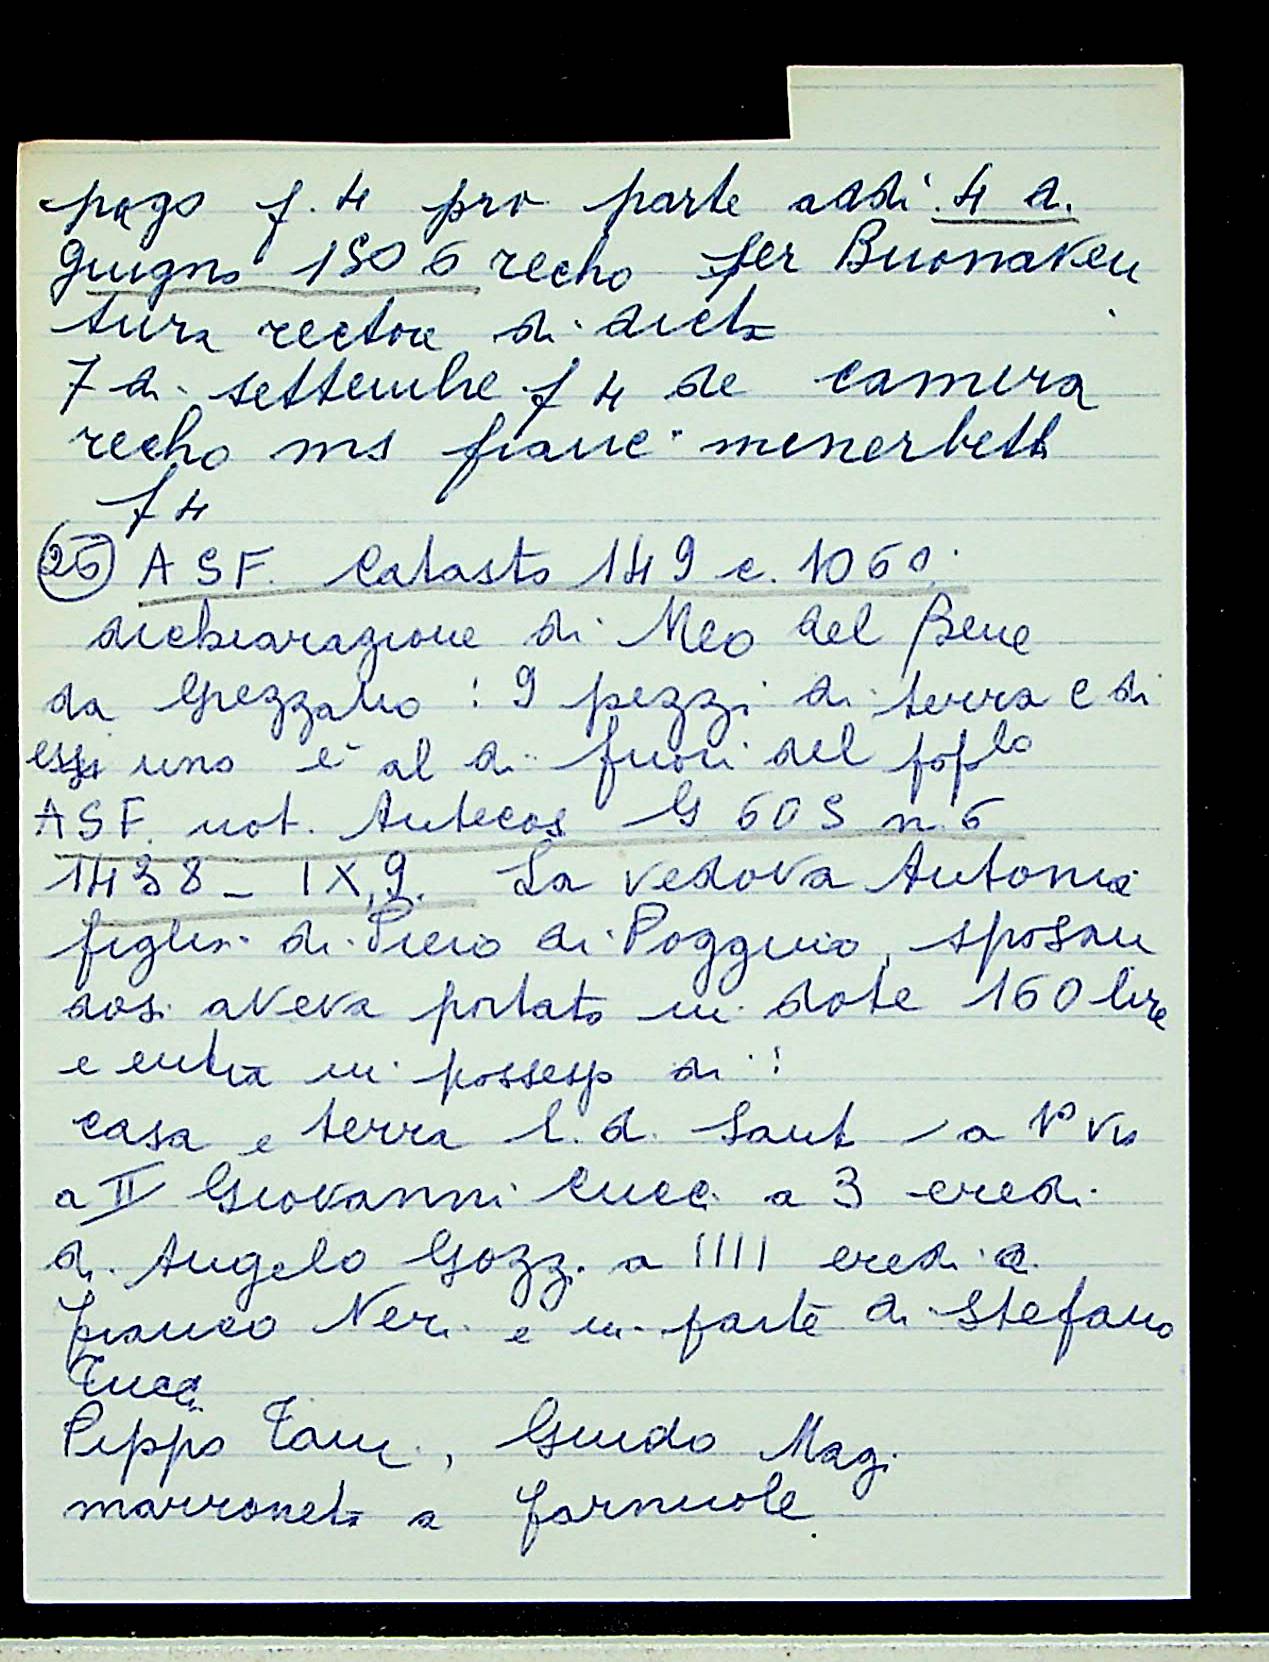 pago f. 4 pro parte addi 4 d.
giugno 1506 recho ser Buonaven
tura rectore di dicta
7 di settembre f 4 de camera
recho ms franc° menerbetti
f 4
26 ASF. Catasto 149 c. 1060.
dichiarazione di Meo del Bene
da Grezzano : 9 pezzi di terra e di
essi uno è al di fuori del poplo
ASF. not. Antecos G 603 n. 6
1438 - IX, 9. La vedova Antonia
figlia di Piero di Poggiuio, sposan
dosi aveva portato in dote 160 lire
e entra in possesso di :
casa e terra l. d. Sant a 1° via
a II Giovanni Cucci a 3 eredi
di Angelo Gozzi a IIII eredi
franco Neri e in parte di Stefano
Tucci
Pippo Tani, Guido Magi
marroneta a farnuole